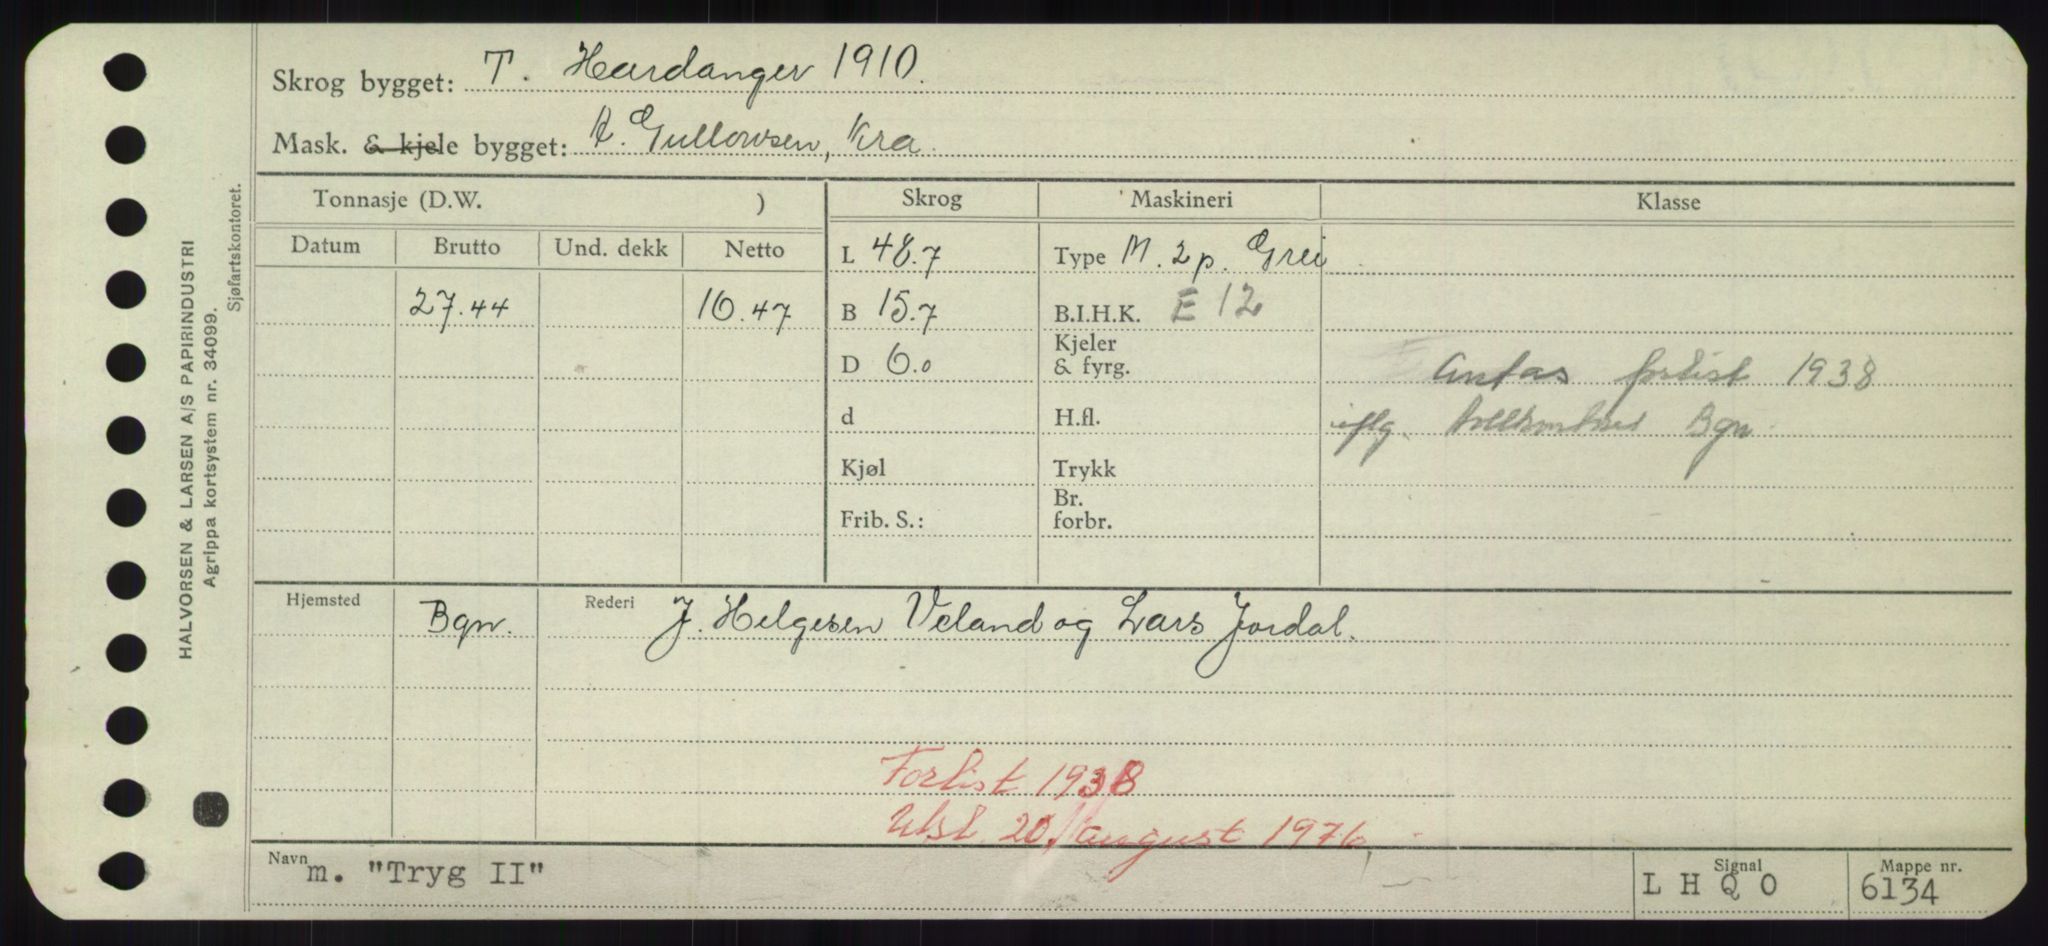 Skrog bygget: T. Hardanger 1910.
Mask. & kjele bygget: A. Gullowsen, Kra.
Tonnasje (D.W. ) Skrog Maskineri Klasse
Datum Brutto Und. dekk Netto L 48.7 Type M. 2 p. Grei
27.44 10.47 B 15.7 B.I.H.K. E 12
D 6.0 Kjeler & fyrg. Antas forlist 1938
d H.fl. iflg. Bgn.
Kjøl Trykk
Frib. S.: Br. forbr.
Hjemsted Bgn. Rederi J. Helgesen Veland og Lars Jordal.
Forlist 1938
Utsl. 20/ august 1976
Navn m. "Tryg II" Signal L H Q O Mappe nr. 6134
HALVORSEN & LARSEN A/S PAPIRINDUSTRI
Agrippa kortsystem nr. 34099.
Sjøfartskontoret.